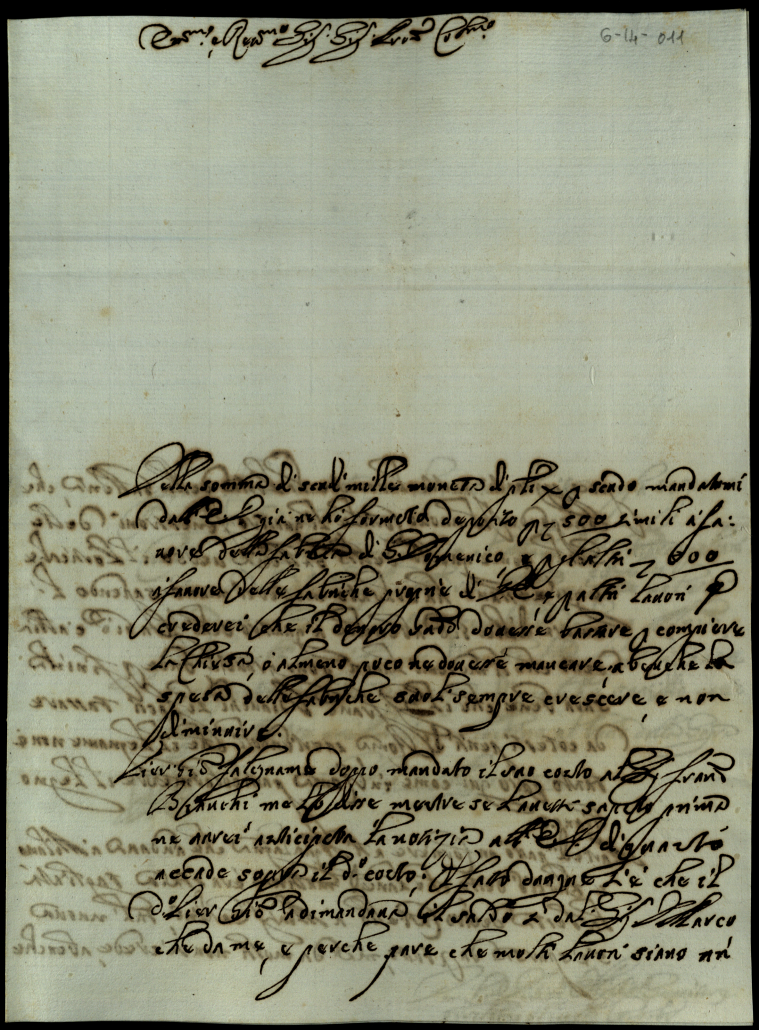 Em.mo e Rev.mo Sig. Sig. Pron. Col.mo
6-14-011
Della somma di scudi mille moneta di pli X p scudo mandatomi
dall' E. V. già ne ho formato deposito p 500 simili à fa:
vore della fabrica di S. Domenico, e p altri 500
à favore delle fabriche p altri lavori
crederei che il denaro dovesse bastare p compiere
la Chiesa ò almeno poco ne dovesse mancare, abenche la
spesa delle fabriche suol sempre crescere, e non
diminuire.
Pier Gio falegname doppo mandato il suo conto al Sig Fran
Bianchi me lo disse mentre se l'havesse saputo prima
ne havrei anticipata la notizia all' E. V. di quanto
accade sopra il d.o conto; Il fatto dunque si è che il
d.o Pier Gio adimandava il saldo sì dal Sig Marco
che da me, e perche pare che molti lavori siano